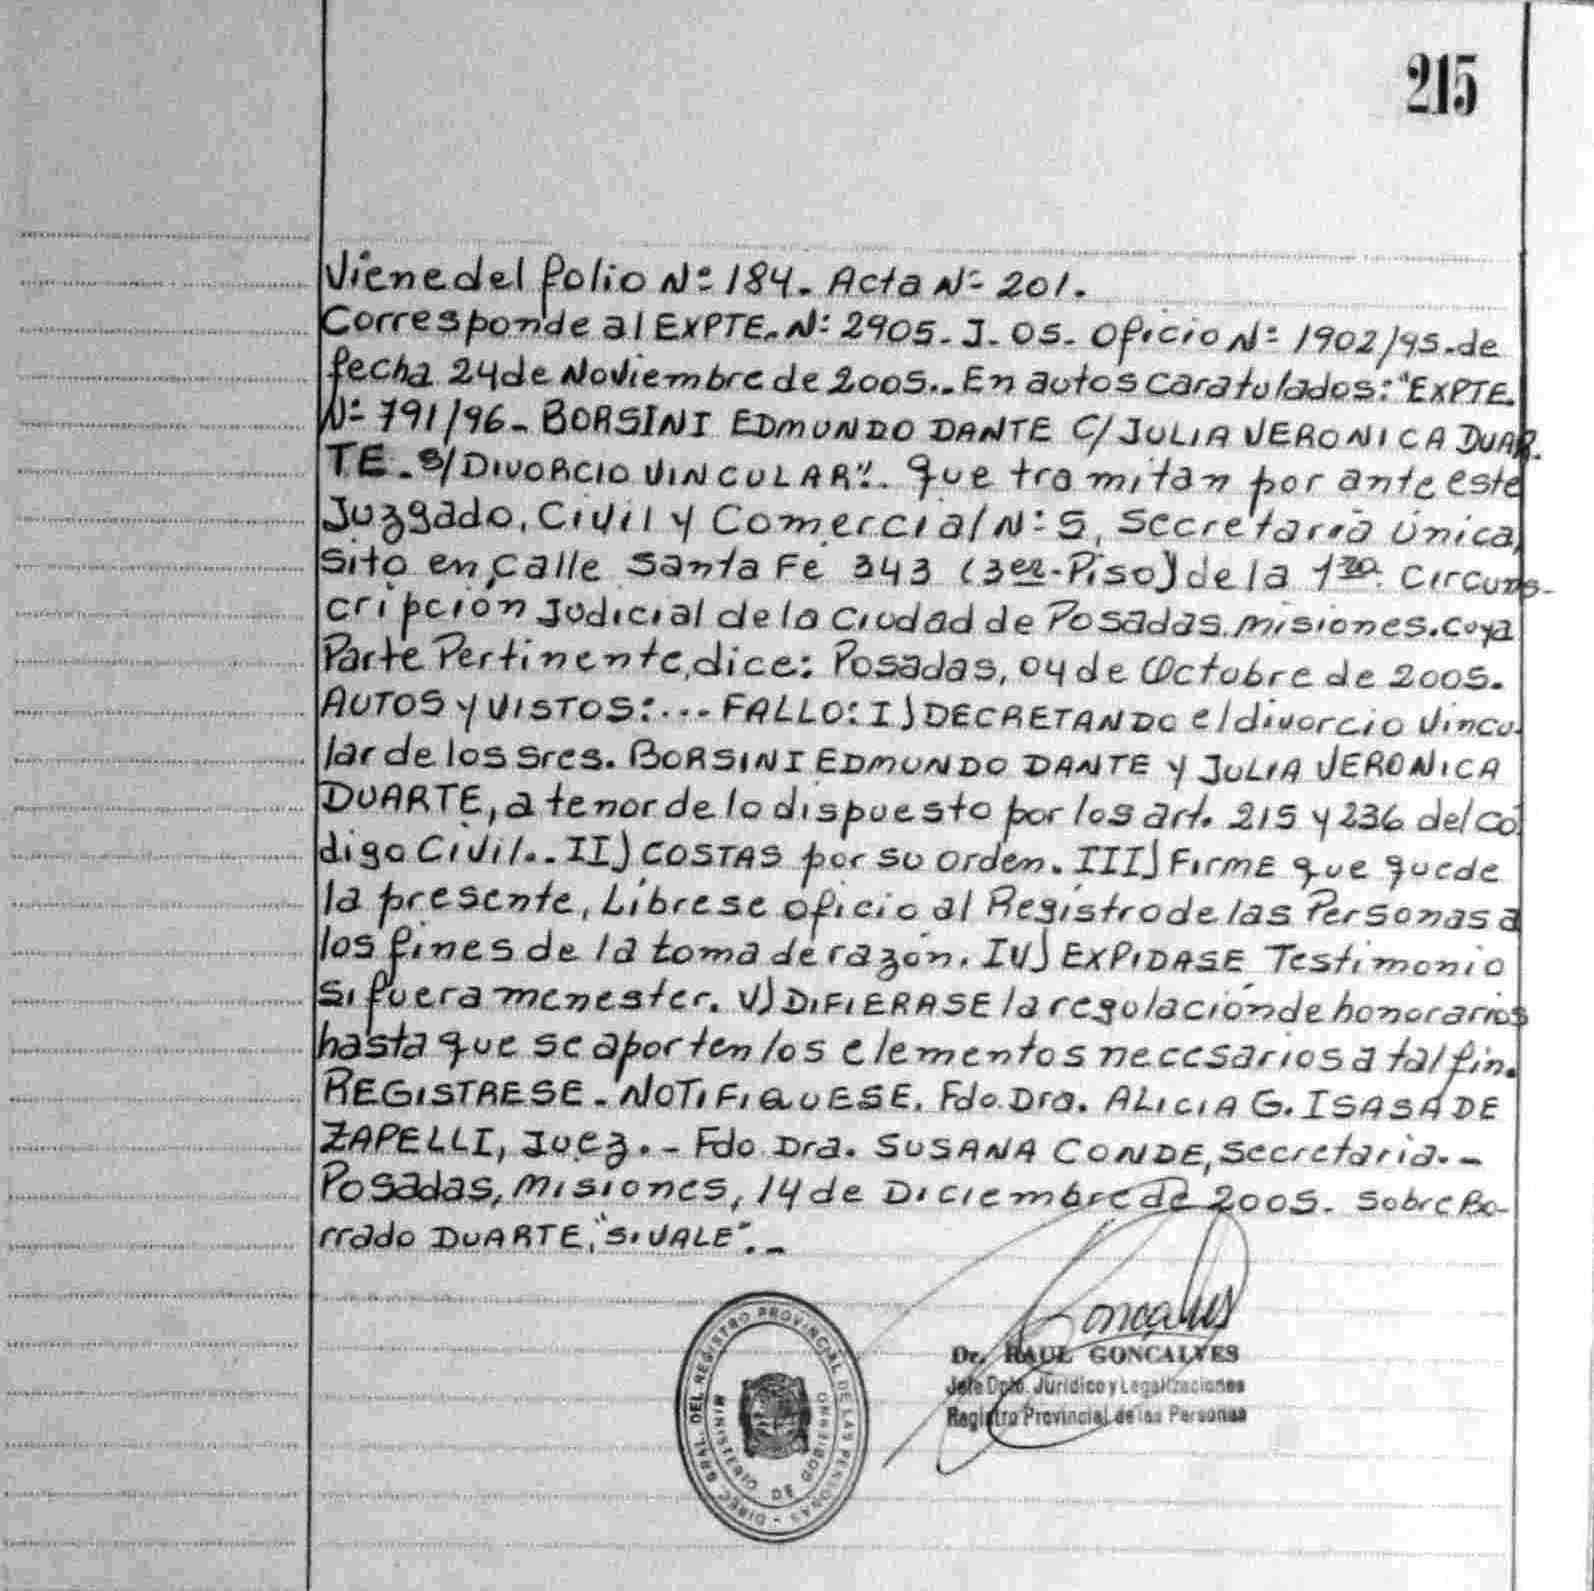 215
Viene del folio Nº 184. Acta Nº 201.
Corresponde al EXPTE. Nº 2905. J. 05. Oficio Nº 1902/95. de
fecha 24 de Noviembre de 2005.. En autos caratulados: "EXPTE.
Nº 791/96. BORSINI EDMUNDO DANTE C/ JULIA VERONICA DUAR-
TE. S/ DIVORCIO VINCULAR". que tramitan por ante este
Juzgado, Civil y Comercial Nº 5, Secretaría Única,
sito en calle Santa Fé 343 (3er. Piso) de la 1ra. Circuns-
cripción Judicial de la Ciudad de Posadas. Misiones. cuya
Parte Pertinente, dice: Posadas, 04 de Octubre de 2005.
AUTOS Y VISTOS:... FALLO: I) DECRETANDO el divorcio vincu-
lar de los Sres. BORSINI EDMUNDO DANTE Y JULIA VERONICA
DUARTE, a tenor de lo dispuesto por los art. 215 y 236 del Có
digo Civil.. II) COSTAS por su orden. III) FIRME que quede
la presente, Líbrese oficio al Registro de las Personas a
los fines de la toma de razón. IV) EXPIDASE Testimonio
si fuera menester. V) DIFIERASE la regulación de honorarios
hasta que se aporten los elementos necesarios a tal fin.
REGISTRESE. NOTIFIQUESE. Fdo. Dra. ALICIA G. ISASA DE
ZAPELLI, Juez. - Fdo Dra. SUSANA CONDE, Secretaria. -
Posadas, Misiones, 14 de Diciembre de 2005. Sobre Bo-
rrado DUARTE, "SI VALE". -
Goncalves
Dr. RAUL GONCALVES
Jefe Dpto. Jurídico y Legalizaciones
Registro Provincial de las Personas
DIREC. GRAL. DEL REGISTRO PROVINCIAL DE LAS PERSONAS -
MINISTERIO DE GOBIERNO